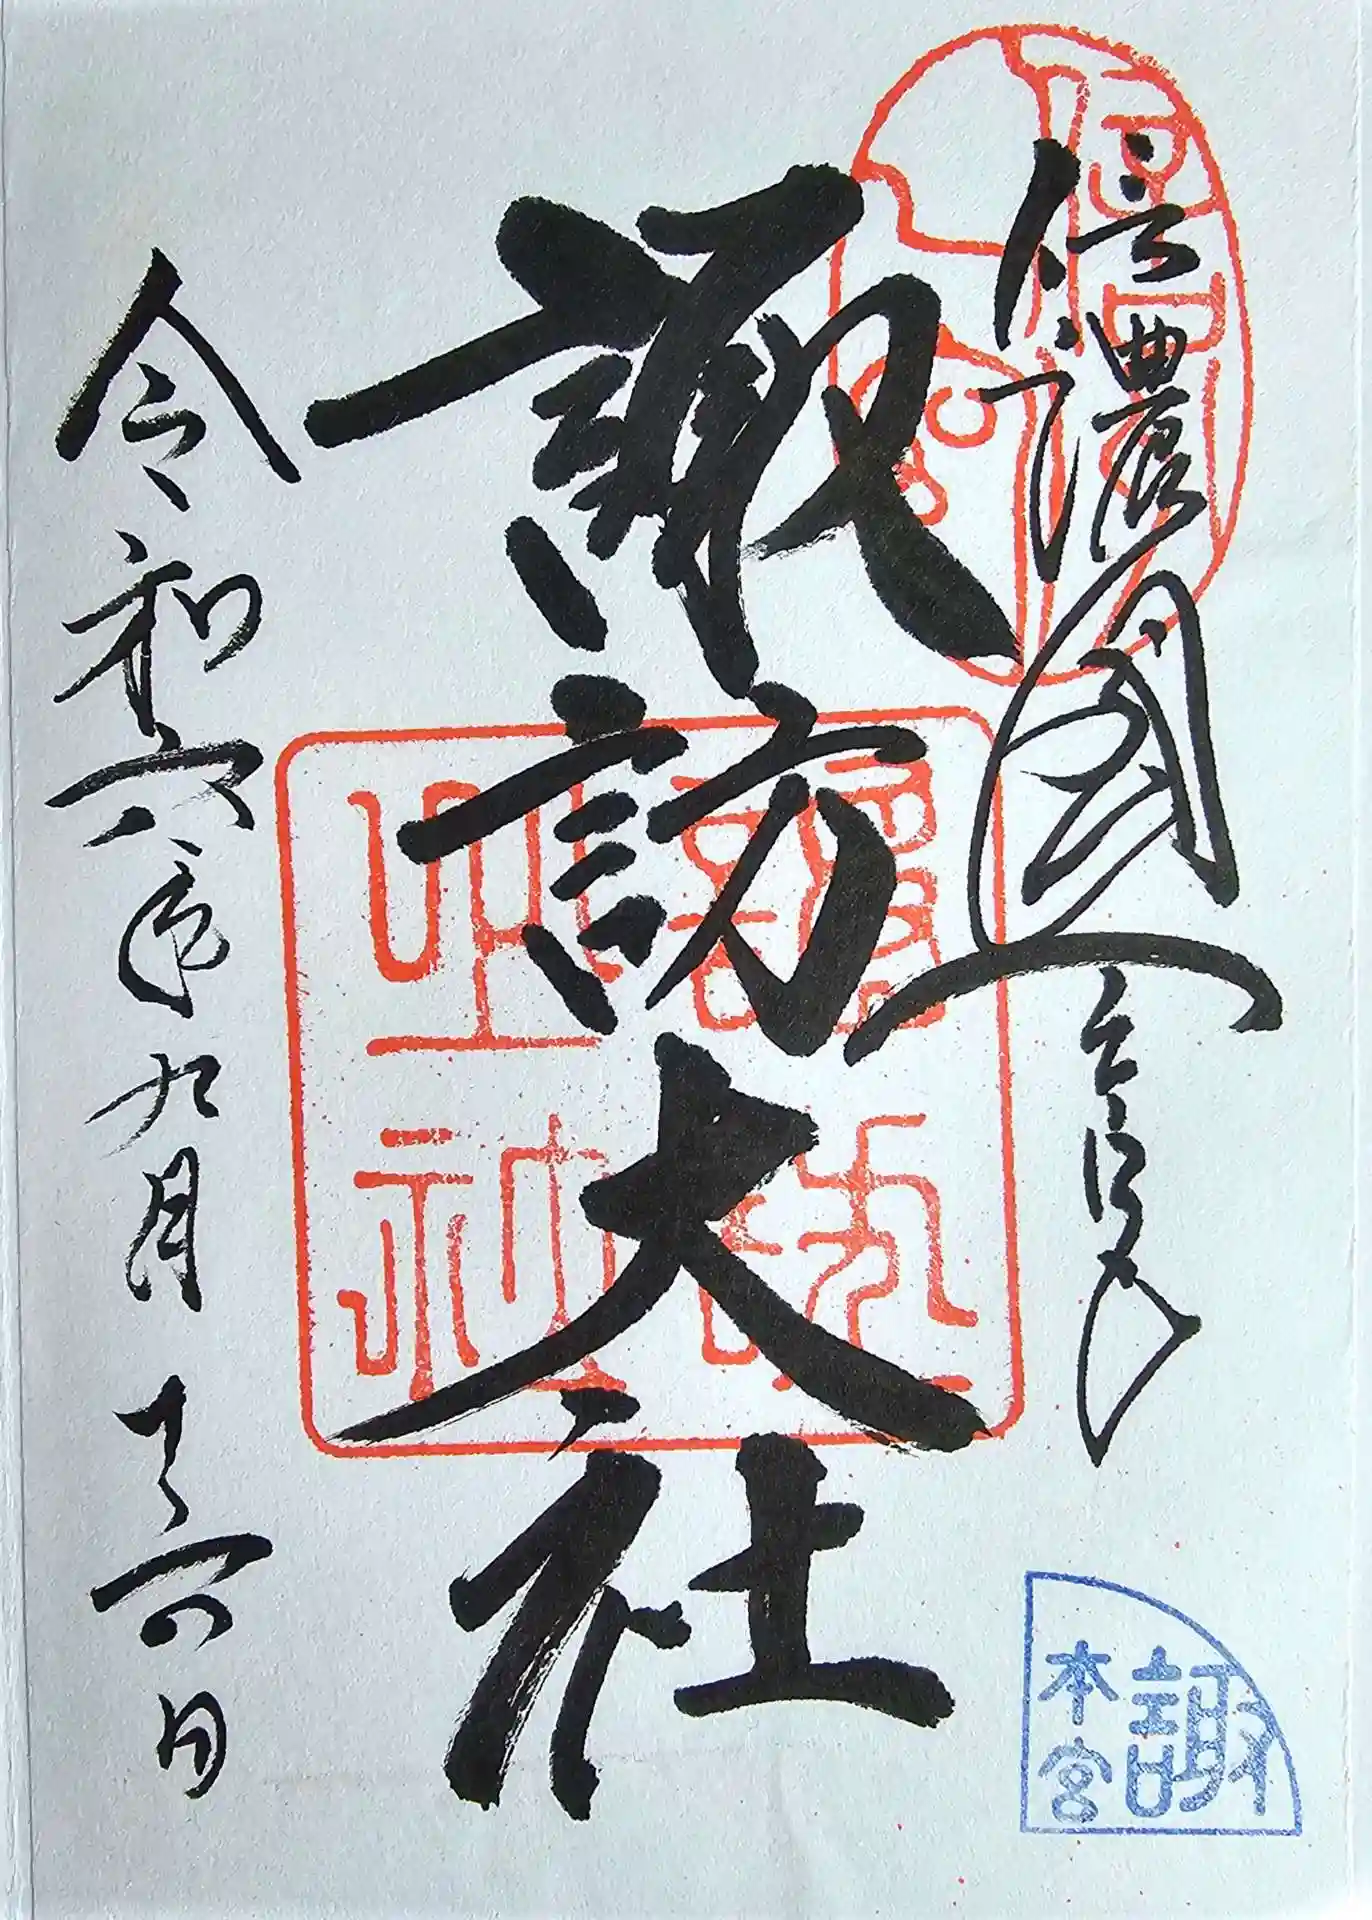 信濃國一之宮
諏訪大社
令和六年九月十六日
諏
本宮